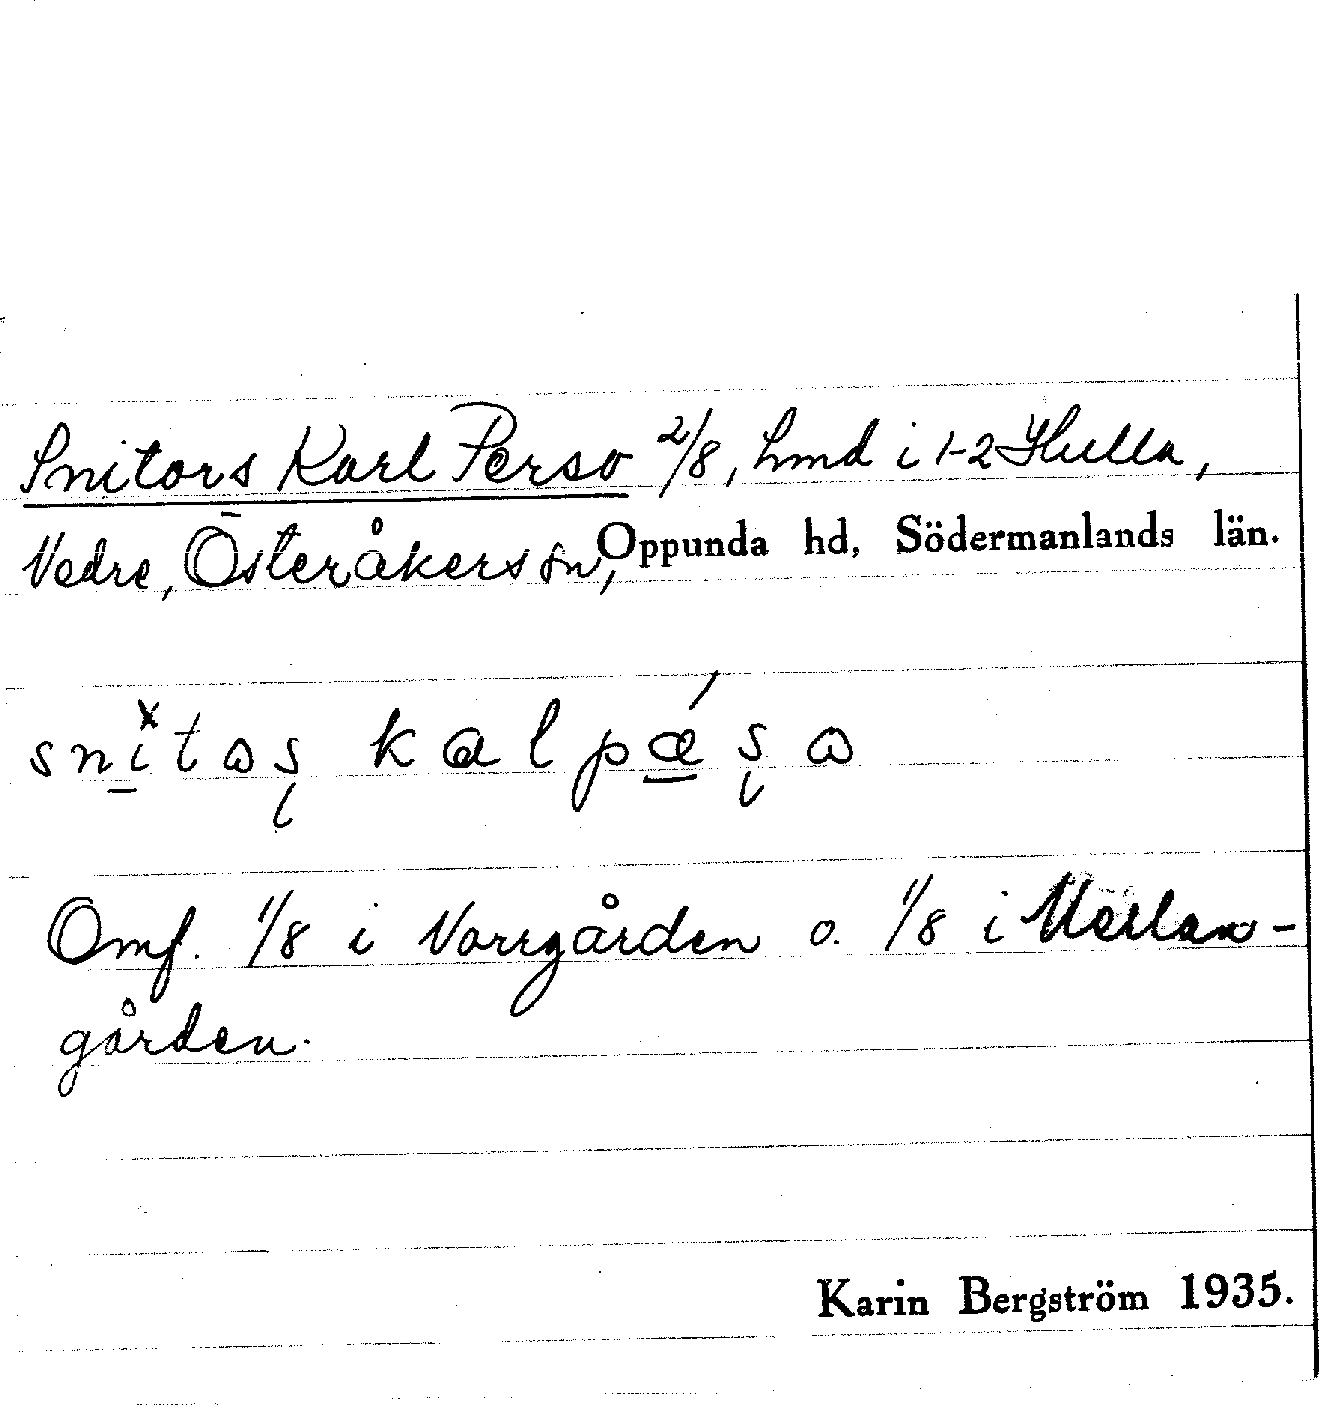 Snitors Karl Perso 2/8, hmd i 1-2 Hulla,
Vedre, Österåkers sn, Oppunda hd, Södermanlands län.
snitɷs kalpæsɷ
Omf. 1/8 i Norrgården o. 1/8 i Mellan-
gården.
Karin Bergström 1935.